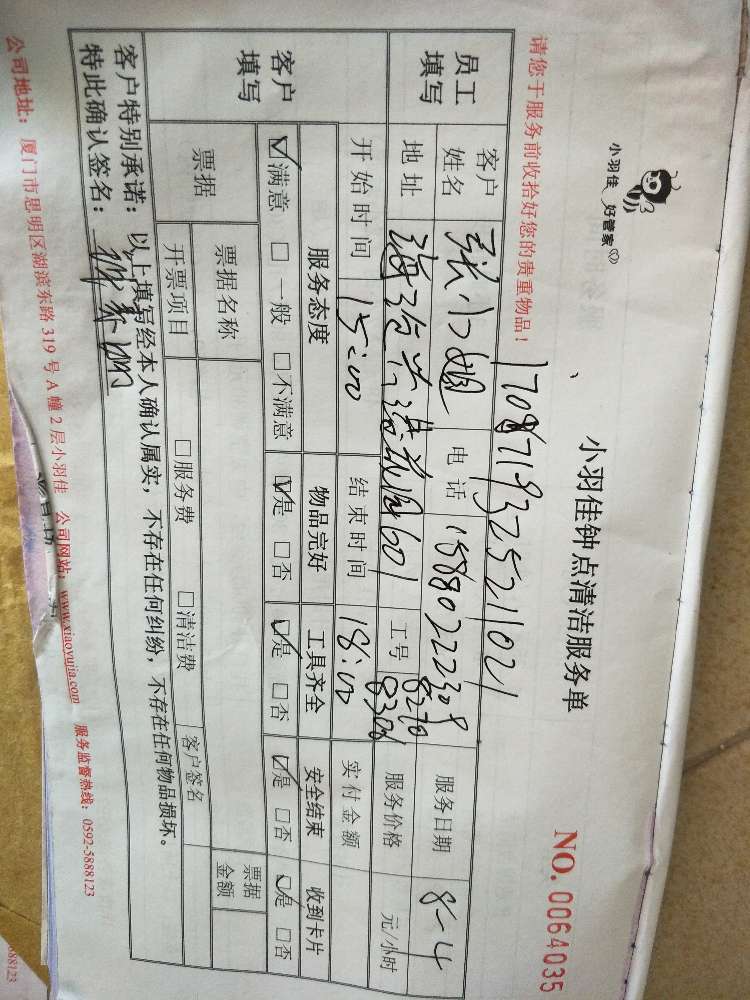 小羽佳 好管家
小羽佳钟点清洁服务单
NO. 0064035
请您于服务前收拾好您的贵重物品！
员工填写
客户姓名 张小姐 电话 15880222309 服务日期 8-4
地址 工号 8270 8306 服务价格 元/小时
开始时间 15:00 结束时间 18:00 实付金额
客户填写
服务态度 物品完好 工具齐全 安全结束 收到卡片
☑满意 □一般 □不满意 ☑是 □否 ☑是 □否 ☑是 □否 ☑是 □否
票据 票据名称 票据金额
开票项目 □服务费 □清洁费 客户签名
客户特别承诺：以上填写经本人确认属实，不存在任何纠纷，不存在任何物品损坏。
特此确认签名：
公司地址：厦门市思明区湖滨东路 319 号 A 幢 2 层小羽佳 公司网站：www.xiaoyujia.com 服务监督热线：0592-5888123